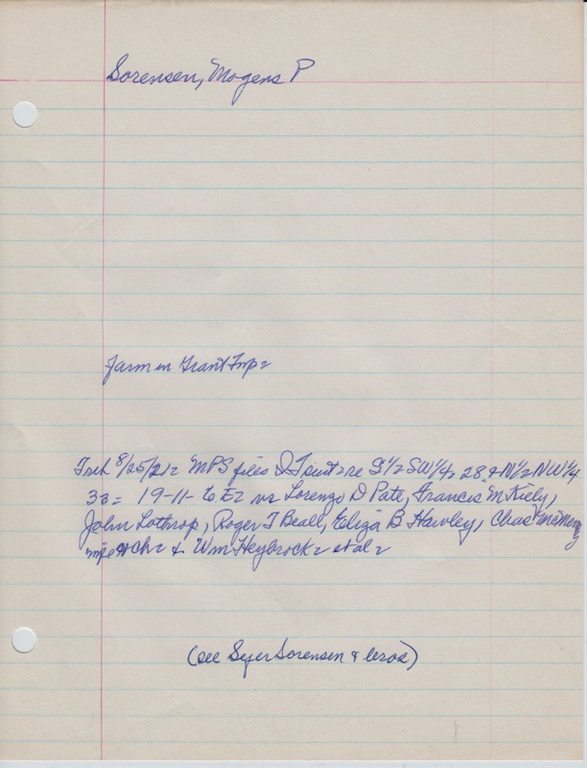 Sorensen, Mogens P
Farm in Grant Twp-
Trib 8/25/21- MPS files QT suit- re S½ SW¼, 28, & N½ NW¼
33- 19-11- to E- vs Lorenzo D Pate, Francis M Kiely,
John Lothrop, Roger T Beall, Eliza B Hawley, Chas
& ch- & Wm Heybrock- et al-
(see Sejer Sorensen & bros)